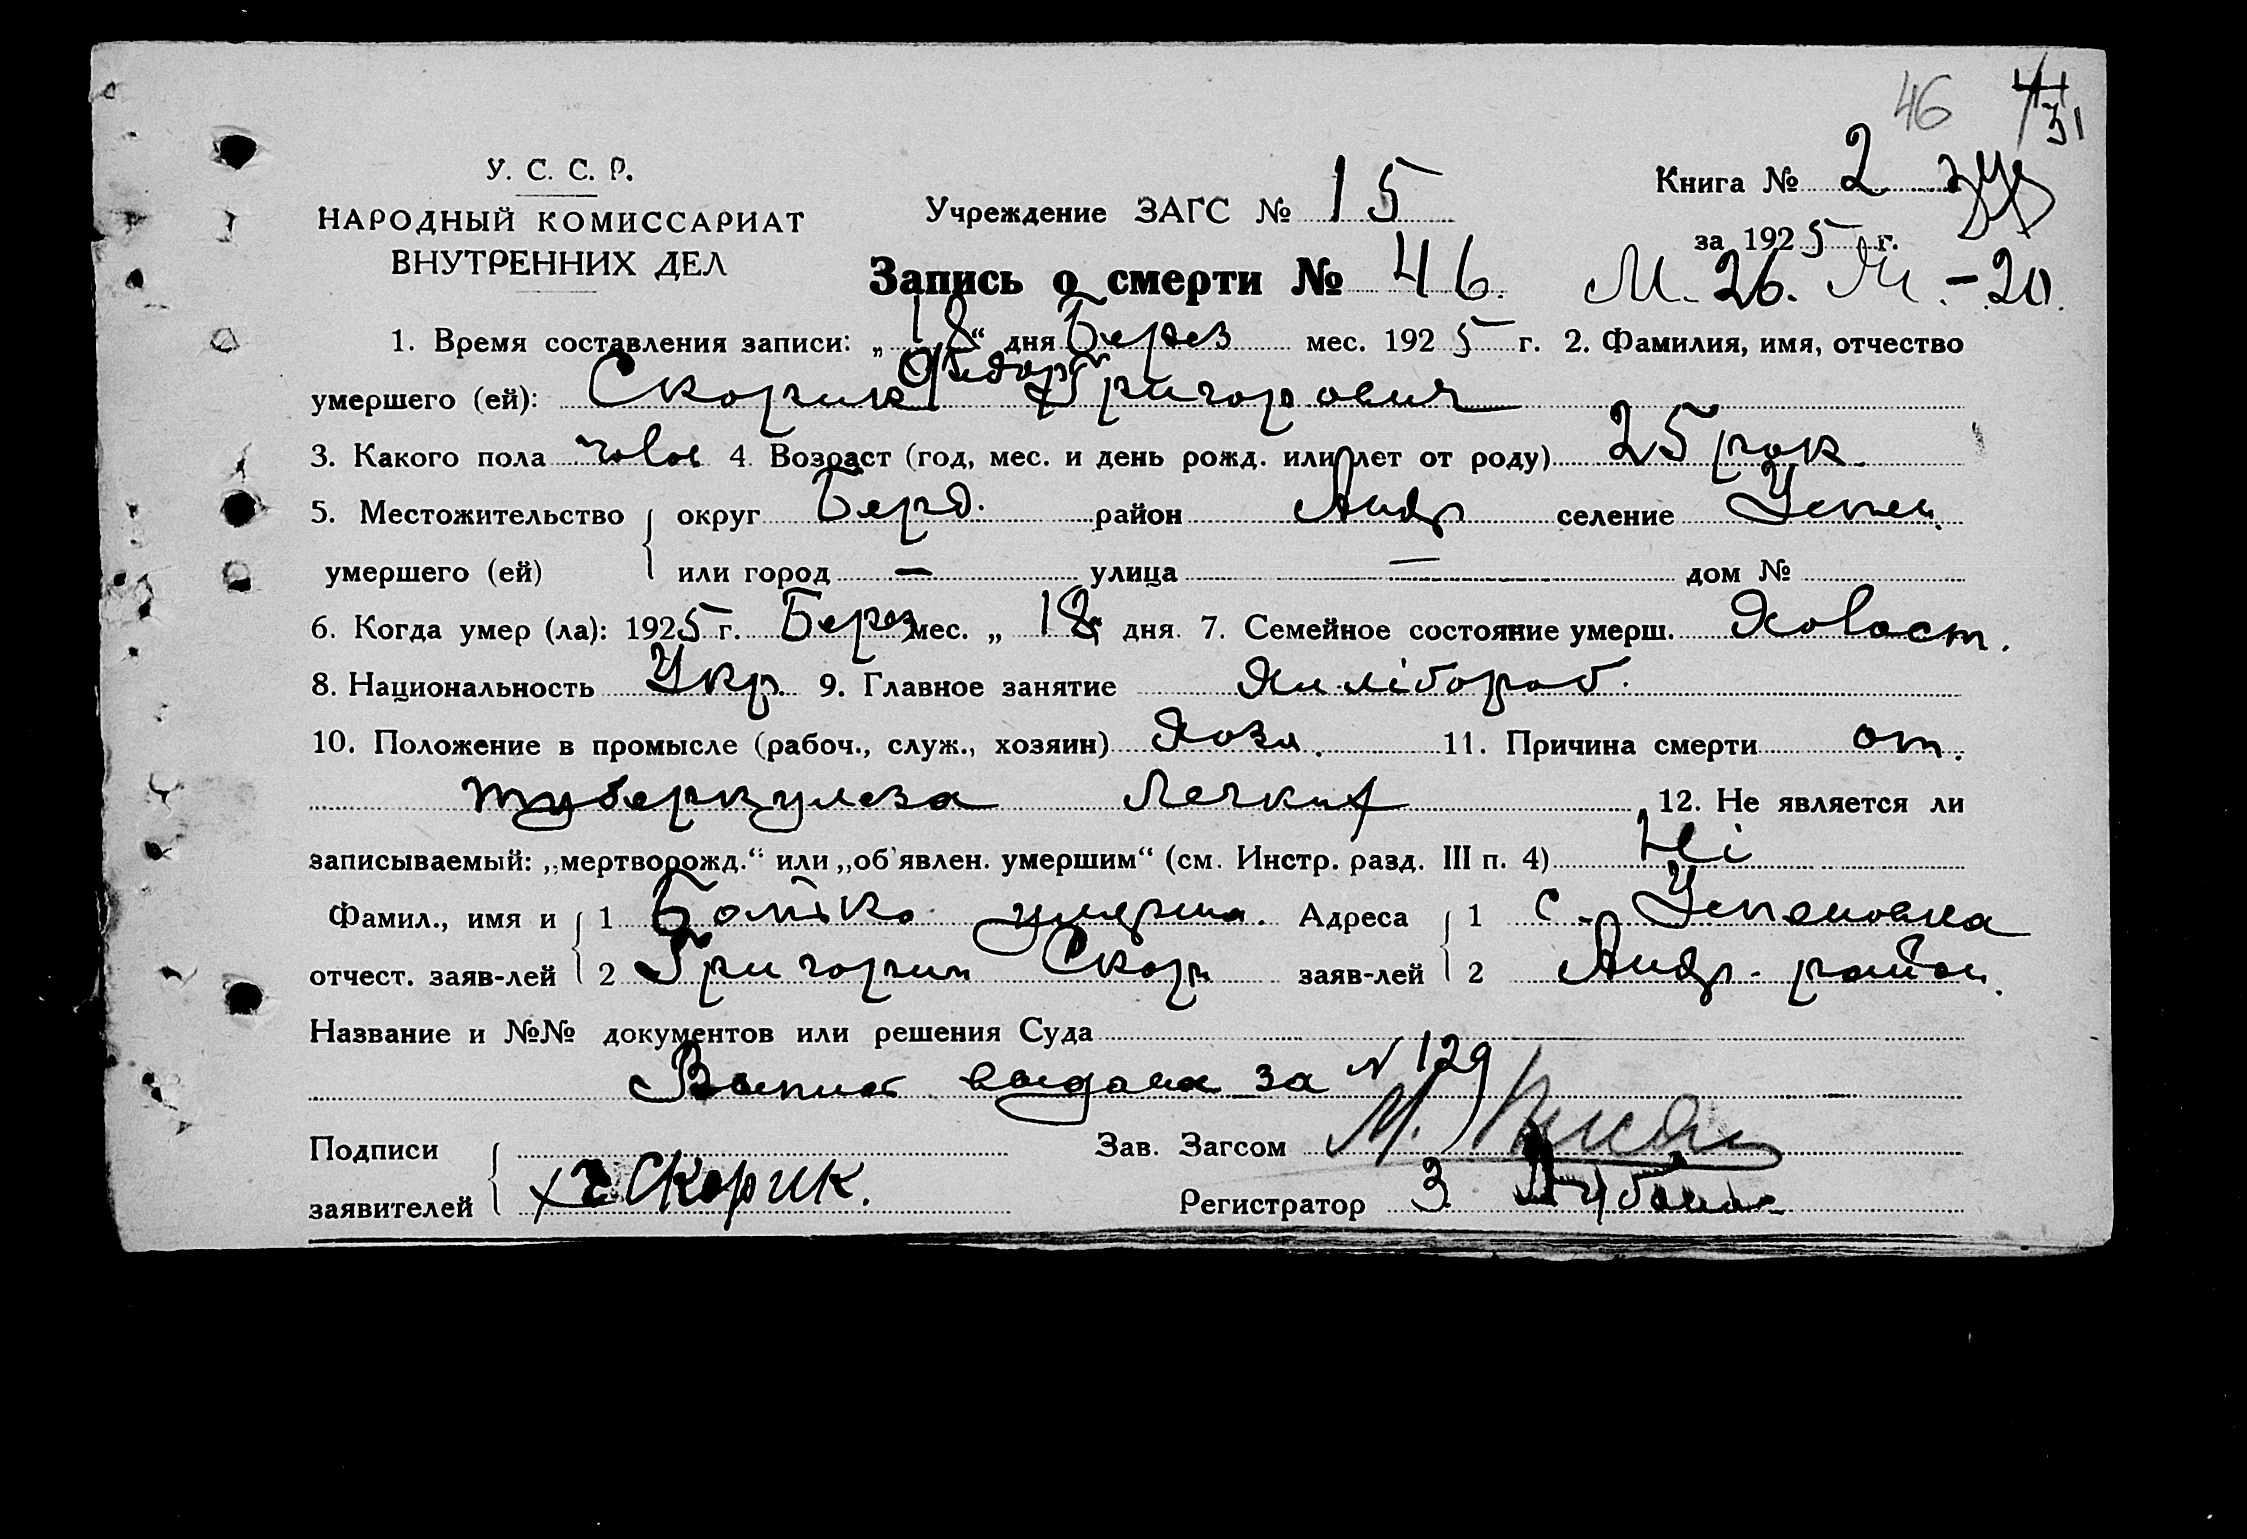 46 31
У. С. С. Р.
НАРОДНЫЙ КОМИССАРИАТ
ВНУТРЕННИХ ДЕЛ
Учреждение ЗАГС № 15
Книга № 2
за 1925 г.
Запись о смерти № 46. М. 26. -20.
1. Время составления записи: „18“ дня Берез мес. 1925 г. 2. Фамилия, имя, отчество
Федор
умершего (ей): Скорик Григорович
3. Какого пола чолов 4. Возраст (год, мес. и день рожд. или лет от роду) 25 рок.
5. Местожительство округ Берд. район Андр селение Успен.
умершего (ей) или город — улица — дом №
6. Когда умер (ла): 1925 г. Берез мес. „ 18 дня. 7. Семейное состояние умерш. Холост.
8. Национальность Укр. 9. Главное занятие Хлібороб.
10. Положение в промысле (рабоч., служ., хозяин) Хозя. 11. Причина смерти от.
туберкулеза Легких 12. Не является ли
записываемый: „мертворожд.“ или „об'явлен. умершим“ (см. Инстр. разд. III п. 4) Ні
Фамил., имя и 1 Батько умерша. Адреса 1 с. Успеновка
отчест. заяв-лей 2 Григорий Скор заяв-лей 2 Андр. район.
Название и №№ документов или решения Суда
Выпис выдана за N 129
Подписи Зав. Загсом М.
заявителей Скорик. Регистратор З.